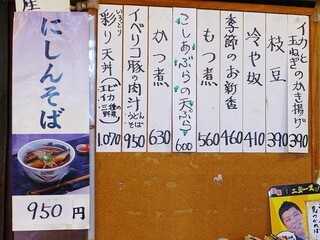 にしんそば
950円
イカと玉ねぎのかき揚げ 390
枝豆 390
冷や奴 410
季節のお新香 460
もつ煮 560
こしあぶらの天ぷら 600
かつ煮 630
イベリコ豚の肉汁うどんそば 950
いろどり
彩り天丼(エビ・イカ・三種の野菜) 1,070